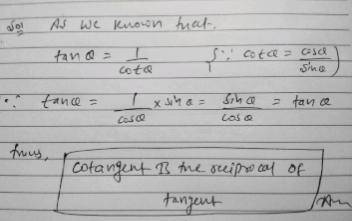 Sol As we known that.
tan θ = 1/cot θ {∵ cot θ = cos θ/sin θ}
∴ tan θ = 1/cos θ × sin θ = sin θ/cos θ = tan θ
thus,
cotangent is the reciprocal of
tangent
Ans